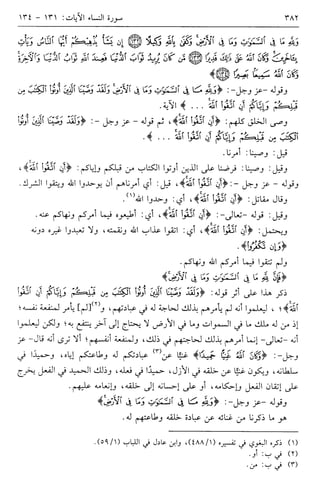 ٣٨٢ سورة النساء الآيات: ١٣١ - ١٣٤
وَلِلَّهِ مَا فِي السَّمَوَاتِ وَمَا فِي الْأَرْضِ وَكَفَى بِاللَّهِ وَكِيلًا إِن يَشَأْ يُذْهِبْكُمْ أَيُّهَا النَّاسُ وَيَأْتِ
بِآخَرِينَ وَكَانَ اللَّهُ عَلَى ذَلِكَ قَدِيرًا مَّن كَانَ يُرِيدُ ثَوَابَ الدُّنْيَا فَعِندَ اللَّهِ ثَوَابُ الدُّنْيَا وَالْآخِرَةِ
وَكَانَ اللَّهُ سَمِيعًا بَصِيرًا﴾
وقوله -عز وجل-: ﴿وَلِلَّهِ مَا فِي السَّمَوَاتِ وَمَا فِي الْأَرْضِ وَلَقَدْ وَصَّيْنَا الَّذِينَ أُوتُوا الْكِتَابَ مِن
قَبْلِكُمْ وَإِيَّاكُمْ أَنِ اتَّقُوا اللَّهَ ... ﴾ الآية.
وصى الخلق كلهم: ﴿أَنِ اتَّقُوا اللَّهَ﴾، ثم قوله - عز وجل -: ﴿وَلَقَدْ وَصَّيْنَا الَّذِينَ أُوتُوا
الْكِتَابَ مِن قَبْلِكُمْ وَإِيَّاكُمْ أَنِ اتَّقُوا اللَّهَ ... ﴾.
قيل: وصينا: أمرنا.
وقيل: وصينا: فرضنا على الذين أوتوا الكتاب من قبلكم وإياكم: ﴿أَنِ اتَّقُوا اللَّهَ﴾،
وقوله - عز وجل -: ﴿أَنِ اتَّقُوا اللَّهَ﴾، قيل: أي: أمرناهم أن يوحدوا الله ويتقوا الشرك.
وقال مقاتل: ﴿أَنِ اتَّقُوا اللَّهَ﴾، أي: وحدوا الله(١).
وقيل: قوله -تعالى-: ﴿أَنِ اتَّقُوا اللَّهَ﴾، أي: أطيعوه فيما أمركم ونهاكم عنه.
ويحتمل: ﴿أَنِ اتَّقُوا اللَّهَ﴾، أي: اتقوا عذاب الله ونقمته، ولا تعبدوا غيره دونه
﴿وَإِن تَكْفُرُوا﴾.
ولم تتقوا فيما أمركم الله ونهاكم.
﴿فَإِنَّ لِلَّهِ مَا فِي السَّمَوَاتِ وَمَا فِي الْأَرْضِ﴾
ذكر هذا على أثر قوله: ﴿وَلَقَدْ وَصَّيْنَا الَّذِينَ أُوتُوا الْكِتَابَ مِن قَبْلِكُمْ وَإِيَّاكُمْ أَنِ اتَّقُوا
اللَّهَ﴾؛ ليعلموا أنه لم يأمرهم بذلك لحاجة له في عبادتهم، و(٢)[لم] يأمر لمنفعة نفسه؛
إذ من له ملك ما في السموات وما في الأرض لا يحتاج إلى آخر ينتفع به؛ ولكن ليعلموا
أنه -تعالى- إنما أمرهم بذلك لحاجتهم في ذلك، ولمنفعة أنفسهم؛ ألا ترى أنه قال -عز
وجل-: ﴿وَكَانَ اللَّهُ غَنِيًّا حَمِيدًا﴾ غنيًّا عن(٣) عبادتكم له وطاعتكم إياه، وحميدًا في
سلطانه، ويكون غنيًّا عن خلقه في الأزل، حميدًا في فعله، وذلك الحميد في الفعل يخرج
على إتقان الفعل وإحكامه، أو على إحسانه إلى خلقه، وإنعامه عليهم.
وقوله -عز وجل-: ﴿وَلِلَّهِ مَا فِي السَّمَوَاتِ وَمَا فِي الْأَرْضِ﴾
هو ما ذكرنا من غنائه عن عبادة خلقه وطاعتهم له.
(١) ذكره البغوي في تفسيره (١/ ٤٨٨)، وابن عادل في اللباب (٧/ ٥٩).
(٢) في ب: أو.
(٣) في ب: من.